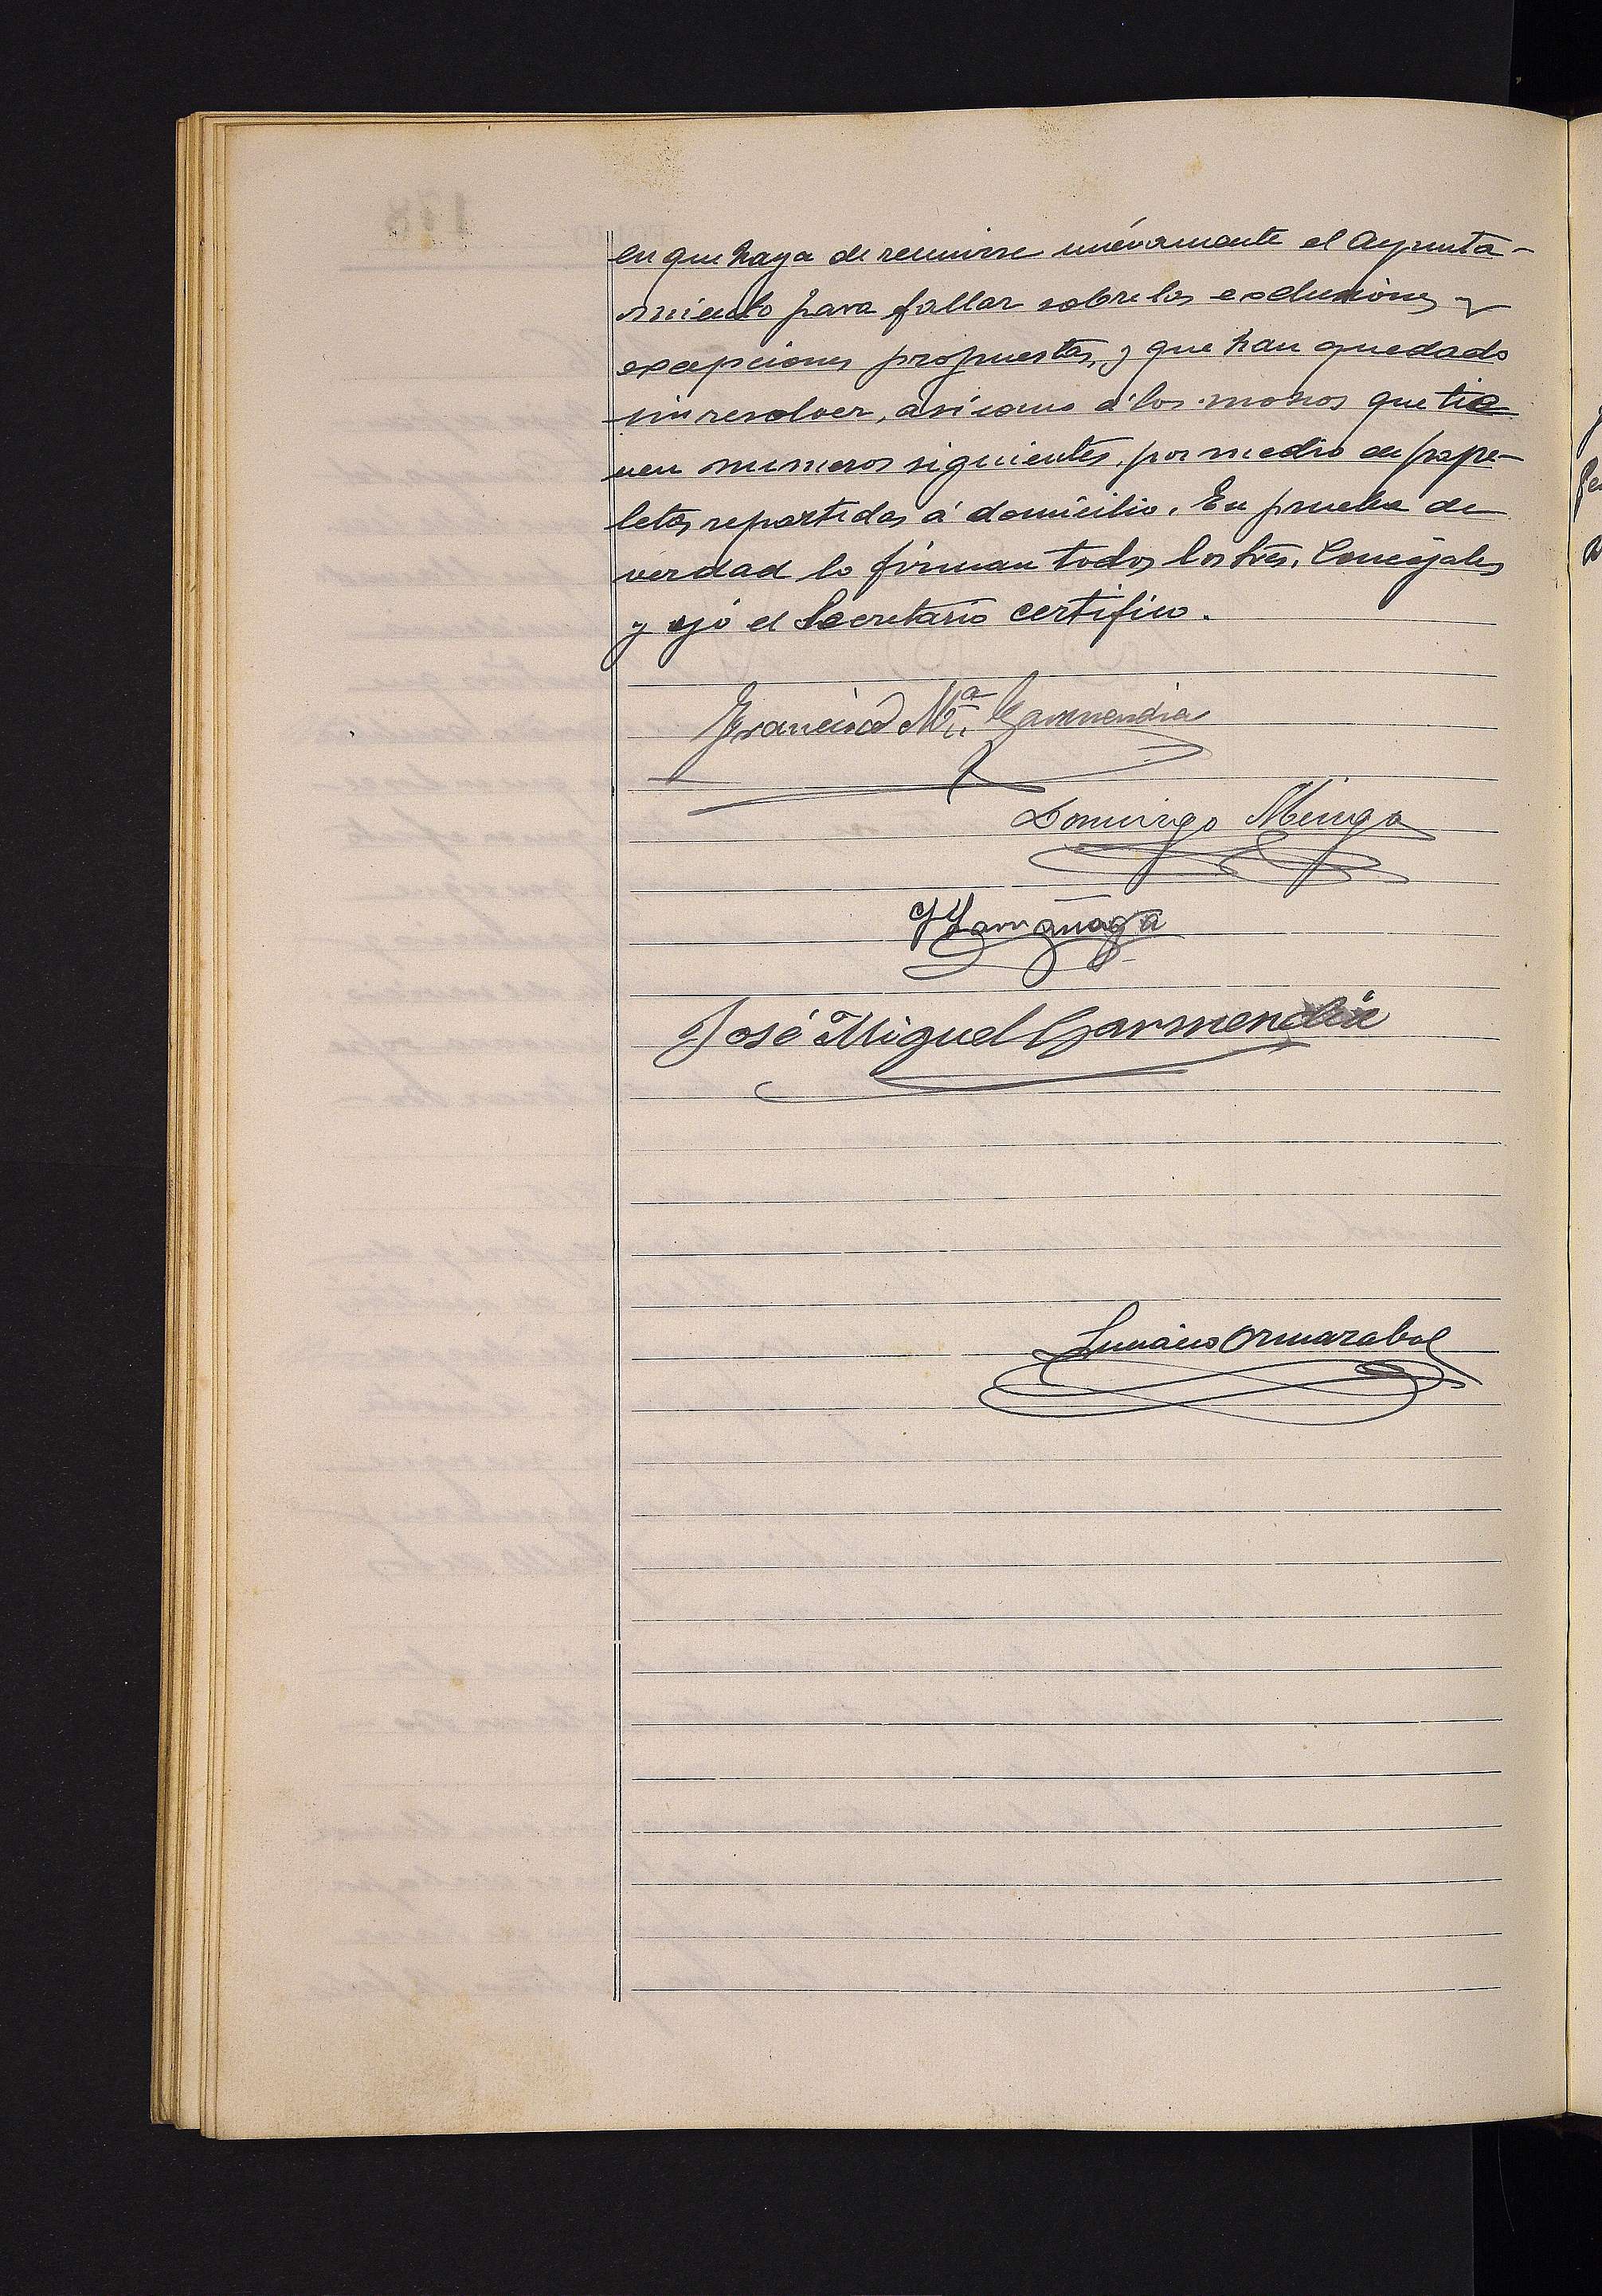 en que haya de reunirse nuévamente el Ayunta-
miento para fallar sobre las exclusiones y
excepciones propuestas, y que han quedado
sin resolver, así como á los mozos que tie
nen numeros siguientes, por medio de pape-
letas repartidas á domicilio. En prueba de
verdad lo firman todos los Sres. Concejales
y yo el Secretario certifico.
Francisco Mª. Garmendia
Domingo
Larrañaga
José Miguel Garmendia
Luciano Ormazabal